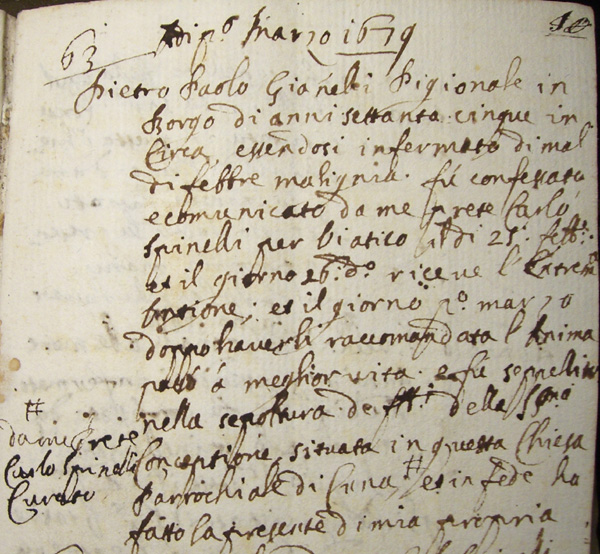 63 Adi p.º Marzo 1679
Pietro Paolo Gianelli Pigionale in
Borgo di anni settanta cinque in
Circa, essendosi infermato di mal
di febbre malignia. fù confessato
e comunicato da me prete Carlo
Spinelli per Viatico il dì 25: febb.º:
et il giorno 26: d.º riceve l'Estrem
Untione; et il giorno p.º marzo
doppo haverli raccomandata l'Anima
passò à meglior vita. e fù seppellito
nella sepoltura de ff.ri della SS.ma
Conceptione, situata in questa Chiesa
Parrochiale di Cuna # et in fede ho
fatto la presente di mia propria
# da me Prete
Carlo Spinelli
Curato